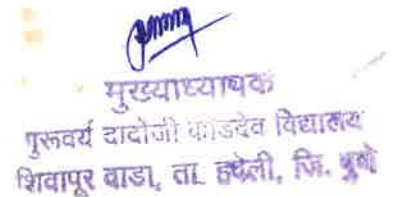 मुख्याध्यापक
गुरूवर्य दादोजी कोंडदेव विद्यालय
शिवापूर वाडा, ता. हवेली, जि. पुणे